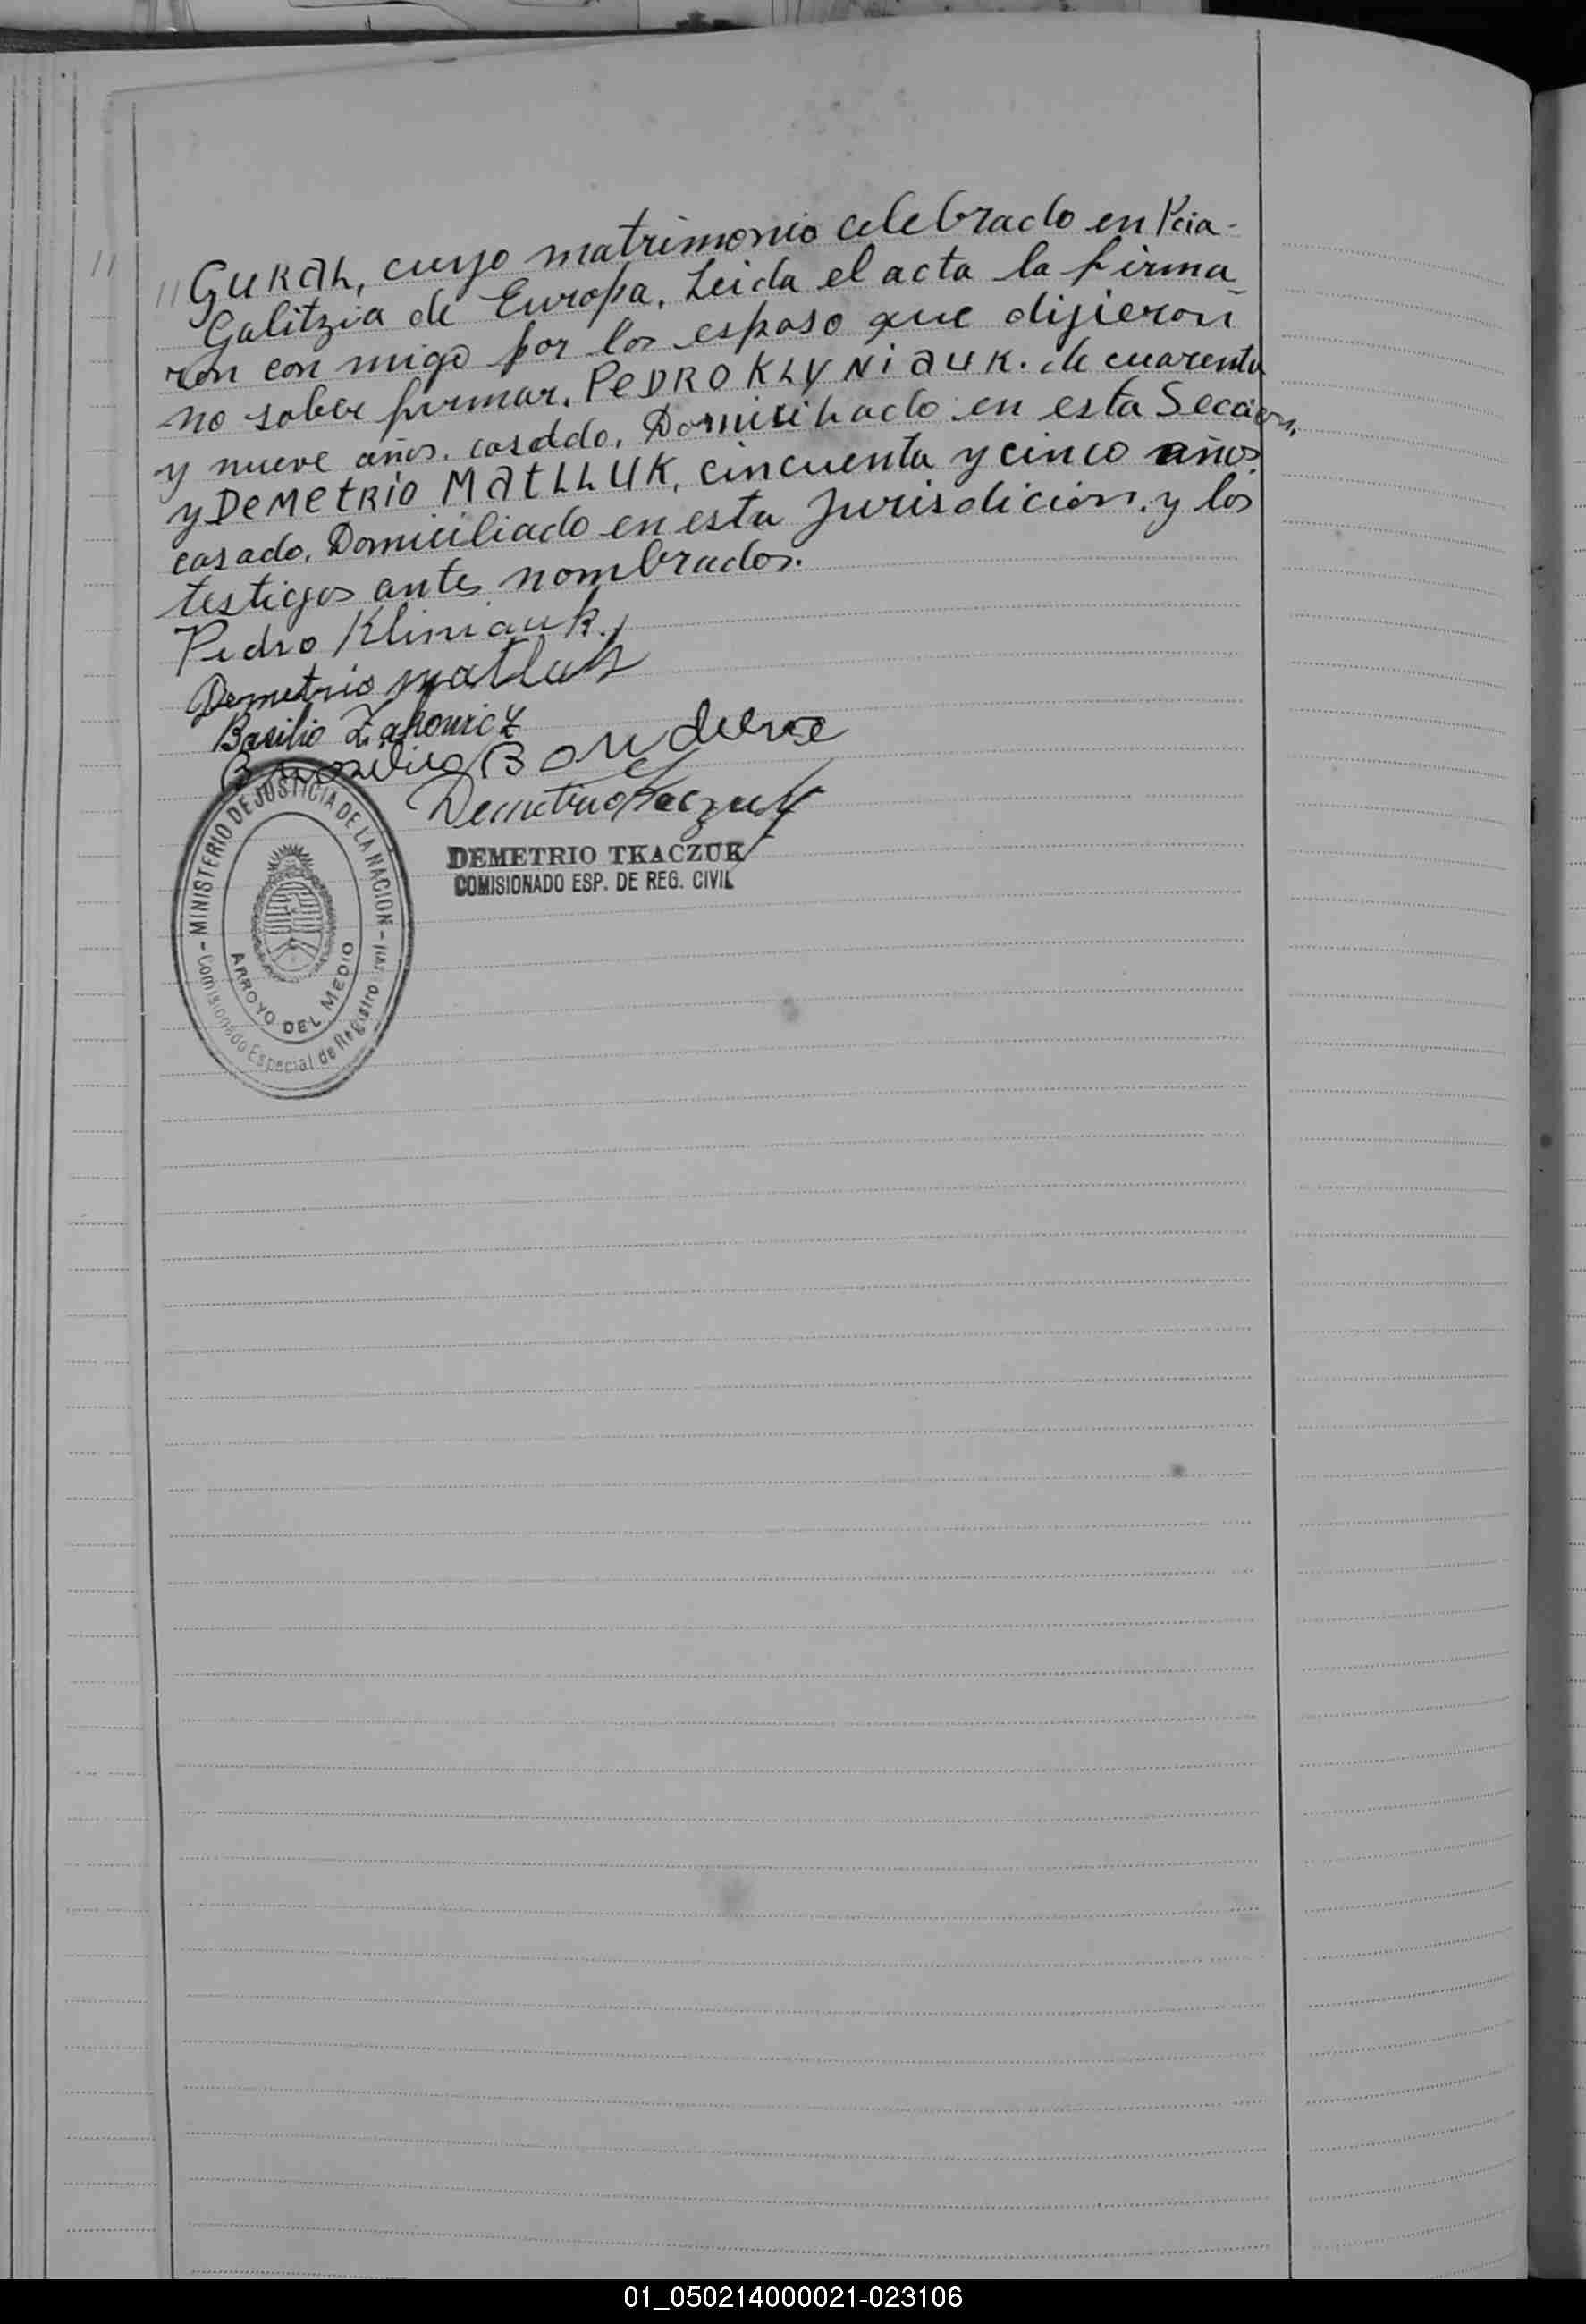 " GuKaL, cuyo matrimonio celebrado en Pcia-
Galitzia de Europa. Leida el acta la firma-
ron con migo por los esposo que dijieron
no saber firmar. PeDRO KLYNiauK. de cuarenta
y nueve años. casaddo. Domiciliado en esta Seccion.
y DeMetRio MatLLuK, cincuenta y cinco años.
casado. Domiciliado en esta Jurisdicion. y los
testigos antes nombrados.
Pedro Kliniauk.
Demetrio Matluk
Basilio
Demetrio Tkaczuk
DEMETRIO TKACZUK
COMISIONADO ESP. DE REG. CIVIL
- MINISTERIO DE JUSTICIA DE LA NACION -
Comisionado Especial de Registro Civil
ARROYO DEL MEDIO
01_050214000021-023106